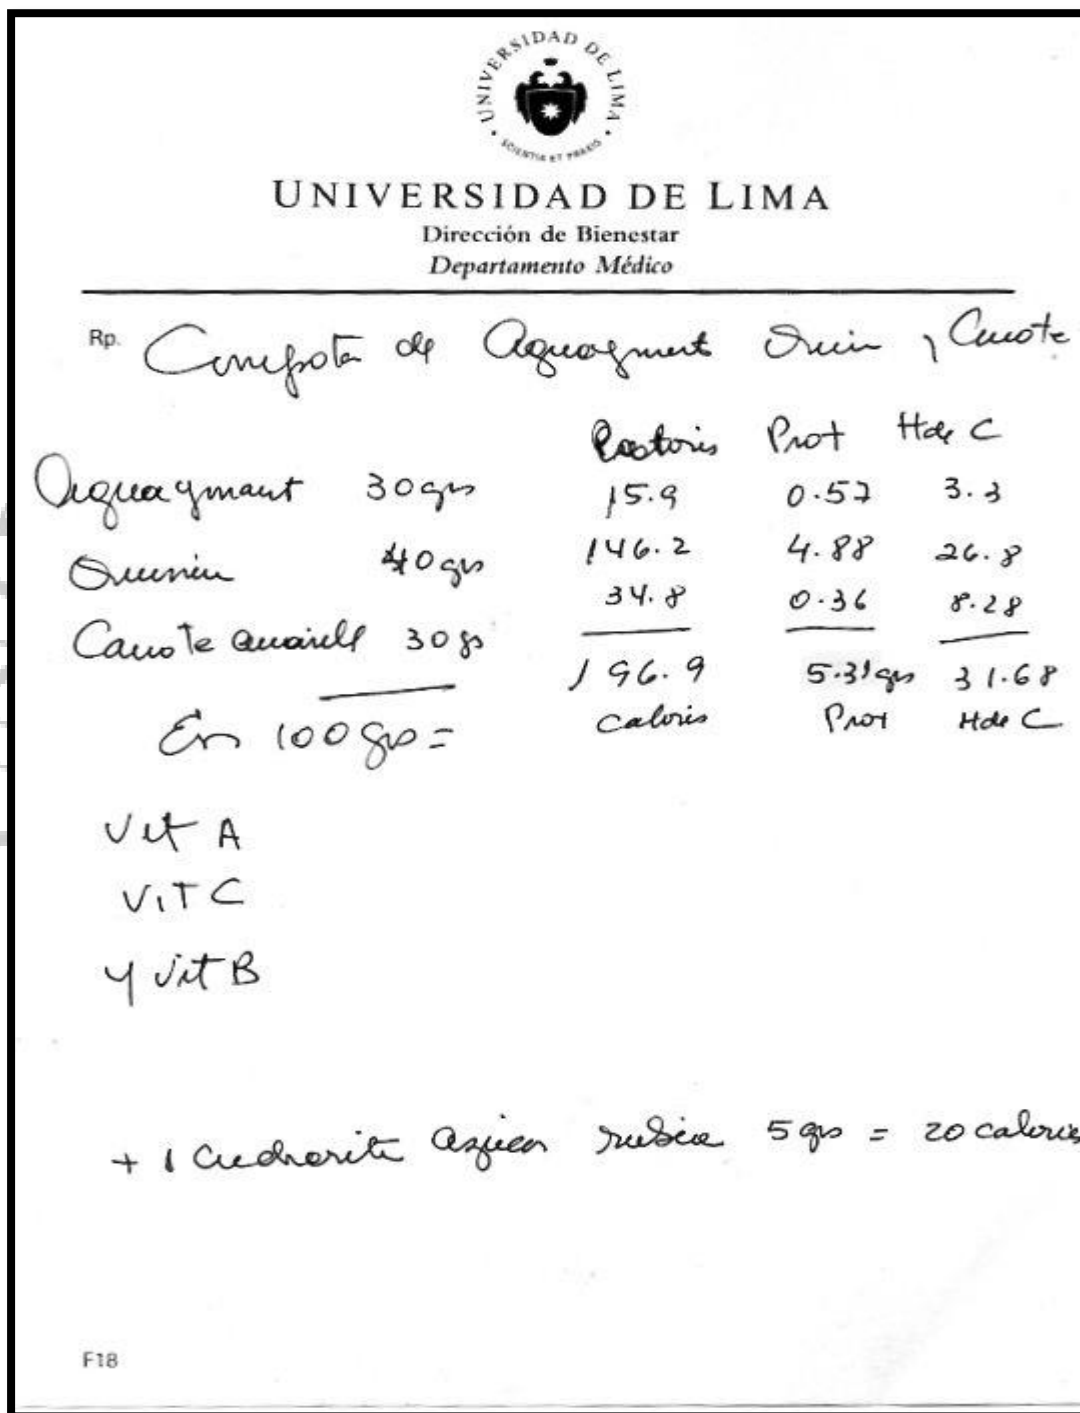 UNIVERSIDAD DE LIMA
SCIENTIA ET PRAXIS
UNIVERSIDAD DE LIMA
Dirección de Bienestar
Departamento Médico
Rp. Compota de Aguaymant y Camote
Prot H de C
Aguaymant 30 grs 15.9 0.57 3.3
40 grs 146.2 4.88 26.8
Camote amarill 30 gs 34.8 0.36 8.28
196.9 5.31 grs 31.68
En 100 grs = caloris Prot H de C
Vit A
Vit C
y Vit B
+ 1 cucharita azúcar rubia 5 grs = 20 calorias
F18